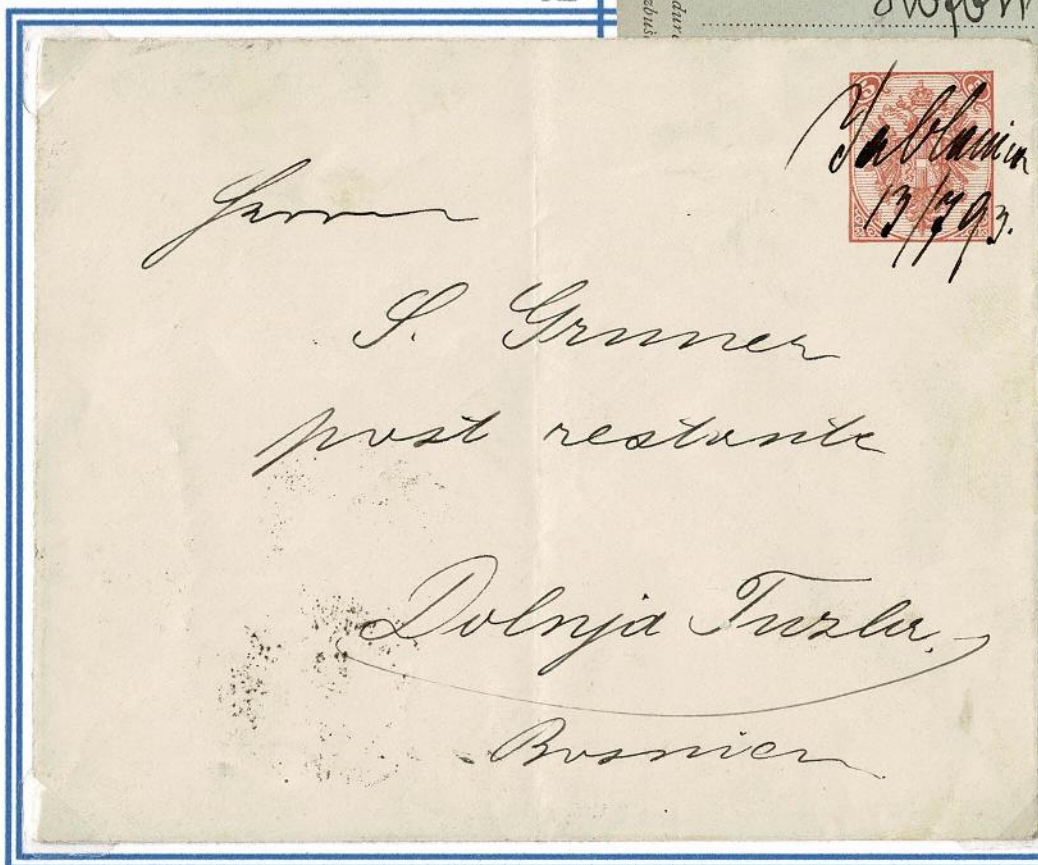 Jablanica
13/7 93.
Herrn
S. Gruner
post restante
Dolnja Tuzla,
Bosnien